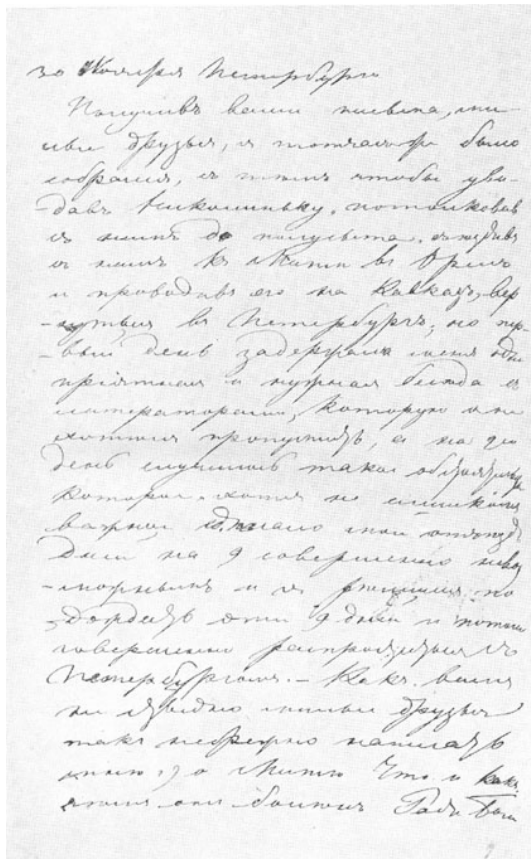 30 Ноября Петербургъ
Получивъ ваши письма, ми-
лые друзья, я тотчасъ же было
собрался, съ тѣмъ чтобы уви-
-давъ Николиньку, потолковавъ
съ нимъ до полусвѣта, съѣздивъ
съ нимъ къ Митѣ въ Орелъ
и проводивъ его на Кавказъ, вер-
-нуться въ Петербургъ; но пер-
-вый день задержала меня одна
пріятная и нужная бесѣда съ
литераторами, которую я не
хотѣлъ пропустить, а на 2ой
день случилось такое обстоятельс
которое хотя не слишкомъ
важное сдѣлало мой отъѣздъ
дней на 9 совершенно невоз
-можнымъ и я рѣшился по
дождать эти 9 дней и потомъ
совершенно распроститься съ
Петербургомъ. – Какъ вамъ
не стыдно милые друзья
такъ небрежно написать
мнѣ о Митѣ Что и какъ
онъ боленъ Ради Бога